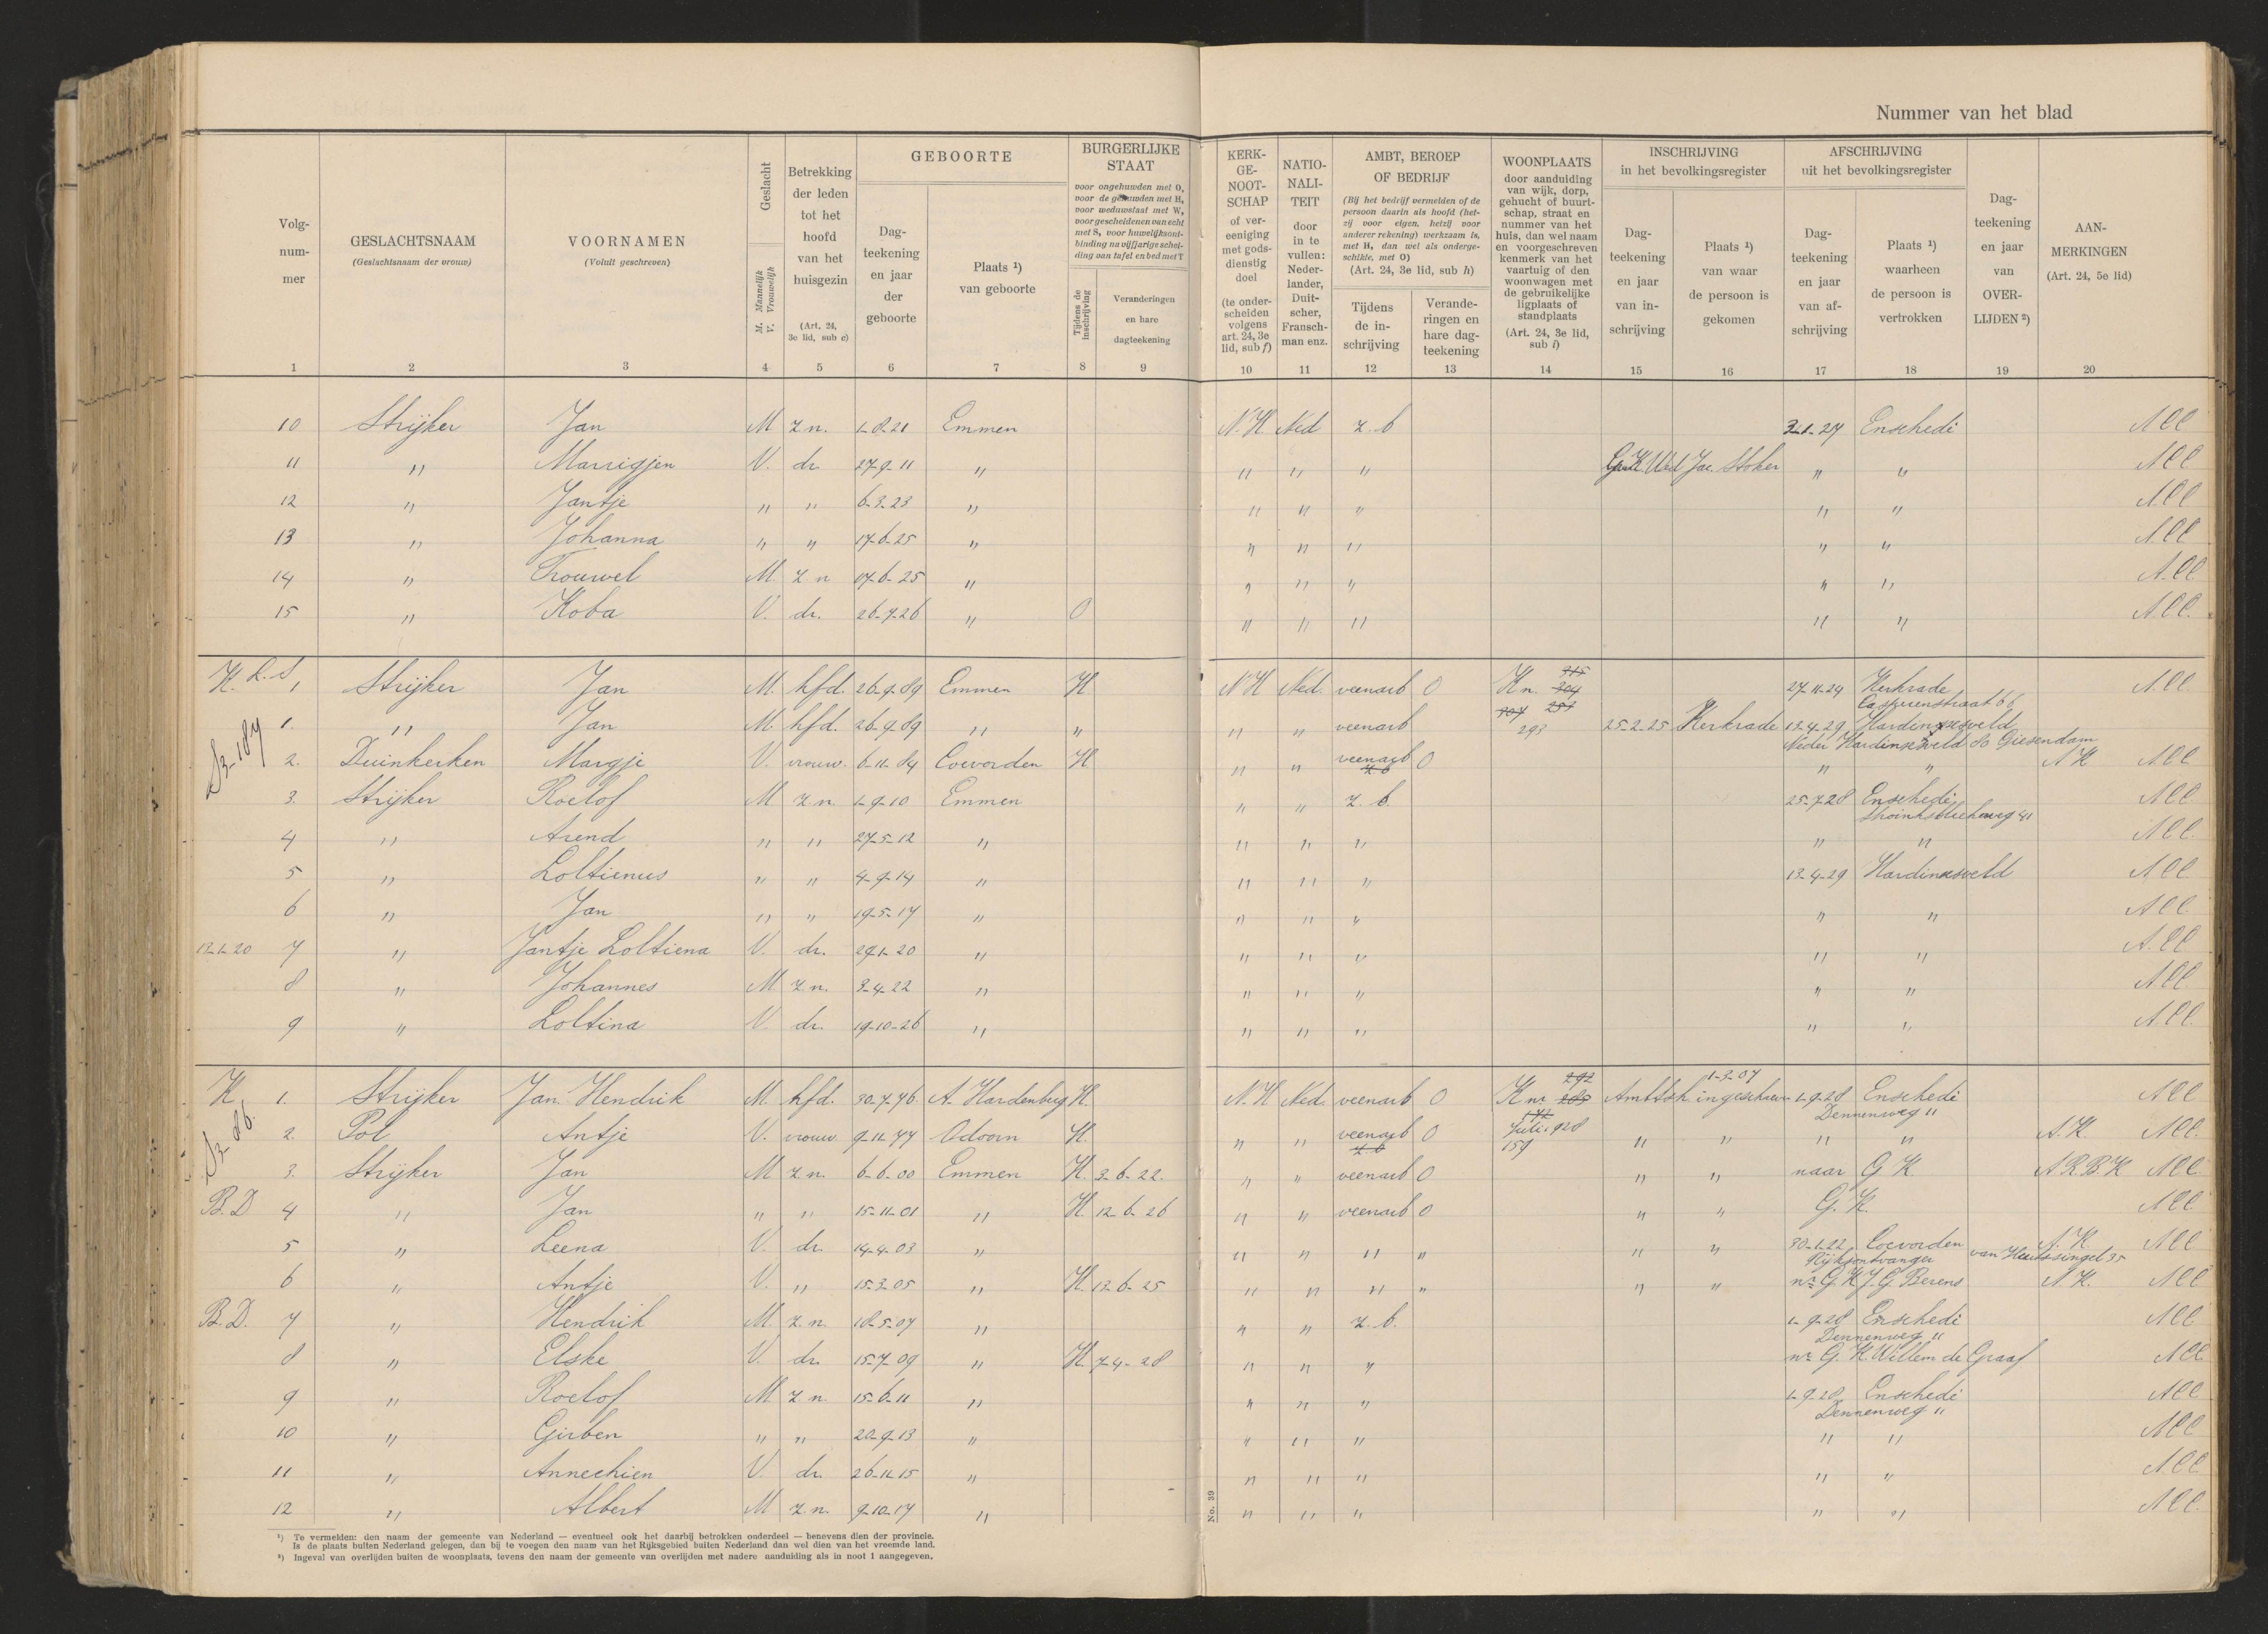 Nummer van het blad
Volg-
num-
mer
GESLACHTSNAAM
(Geslachtsnaam der vrouw)
VOORNAMEN
(Voluit geschreven)
Geslacht
M. Mannelijk
V. Vrouwelijk
Betrekking
der leden
tot het
hoofd
van het
huisgezin
(Art. 24,
3e lid, sub c)
GEBOORTE
Dag-
teekening
en jaar
der
geboorte
Plaats ¹)
van geboorte
BURGERLIJKE
STAAT
voor ongehuwden met O,
voor de gehuwden met H,
voor weduwstaat met W,
voor gescheidenen van echt
met S, voor huwelijksont-
binding na vijfjarige schei-
ding van tafel en bed met T
Tijdens de
inschrijving
Veranderingen
en hare
dagteekening
KERK-
GE-
NOOT-
SCHAP
of ver-
eeniging
met gods-
dienstig
doel
(te onder-
scheiden
volgens
art. 24, 3e
lid, sub f)
NATIO-
NALI-
TEIT
door
in te
vullen:
Neder-
lander,
Duit-
scher,
Fransch-
man enz.
AMBT, BEROEP
OF BEDRIJF
(Bij het bedrijf vermelden of de
persoon daarin als hoofd (het-
zij voor eigen, hetzij voor
anderer rekening) werkzaam is,
met H, dan wel als onderge-
schikte, met O)
(Art. 24, 3e lid, sub h)
Tijdens
de in-
schrijving
Verande-
ringen en
hare dag-
teekening
WOONPLAATS
door aanduiding
van wijk, dorp,
gehucht of buurt-
schap, straat en
nummer van het
huis, dan wel naam
en voorgeschreven
kenmerk van het
vaartuig of den
woonwagen met
de gebruikelijke
ligplaats of
standplaats
(Art. 24, 3e lid,
sub i)
INSCHRIJVING
in het bevolkingsregister
Dag-
teekening
en jaar
van in-
schrijving
Plaats ¹)
van waar
de persoon is
gekomen
AFSCHRIJVING
uit het bevolkingsregister
Dag-
teekening
en jaar
van af-
schrijving
Plaats ¹)
waarheen
de persoon is
vertrokken
Dag-
teekening
en jaar
van
OVER-
LIJDEN ²)
AAN-
MERKINGEN
(Art. 24, 5e lid)
1 2 3 4 5 6 7 8 9 10 11 12 13 14 15 16 17 18 19 20
10 Strijker Jan M z.n. 1-8-21 Emmen N.H. Ned z.b 3-1-27 Enschedé All
11 " Marrigjen V. dr. 27-9-11 " " " " G.K. Wed Jac. Stoker " " All
12 " Jantje " " 6-3-23 " " " " " " All
13 " Johanna " " 17-6-25 " " " " " " All
14 " Trouwel M. z.n 17-6-25 " " " " " " All
15 " Koba V. dr. 26-7-26 " O " " " " " All.
K. L.S 1 Strijker Jan M. hfd. 26-9-89 Emmen H N H Ned. veenarb O Kn. 315 304 27-11-24 Kerkrade All.
Casperenstraat 66
1. " Jan M. hfd. 26-9-89 " " " " veenarb 307 253 293 25-2-25 Kerkrade 13-4-29 Hardinxsveld
Neder Hardinxsveld Bo Giesendam
S3-187 2. Duinkerken Margje V. vrouw. 6-11-84 Coevorden H " " veenarb z.b O " " N H All
3. Strijker Roelof M z.n 1-9-10 Emmen " " z.b. 25-7-28 Enschedé All
4 " Arend " " 27-5-12 " " " " " " All.
5 " Loltienus " " 4-9-14 " " " " 13-4-29 Hardinxsveld All
6 " Jan " " 19-5-17 " " " " " " All.
12-1-20 7 " Jantje Loltiena V. dr. 29-1-20 " " " " " " All
8 " Johannes M z.n. 3-4-22 " " " " " " All
9 " Loltina V. dr. 19-10-26 " " " " " " All.
K 1. Strijker Jan Hendrik M. hfd. 30-7-76 A. Hardenberg H. N.H Ned. veenarb O Kn. 292 285 Ambtsh ingeschrev 1-3-07 1-9-28 Enschedé All
Dennenweg "
S3-86. 2. Pol Antje V. vrouw 9-11-77 Odoorn H. " " veenarb z.b O 172 Juli 928 159 " " " " N.H. All.
3. Strijker Jan M z.n 6-6-00 Emmen H. 3-6-22. " " veenarb O " " naar G K. A R B K All
B.D 4 " Jan " " 15-11-01 " H. 12-6-26 " " veenarb O " " G. K. All
5 " Leena V. dr. 14-4-03 " " " " " " " 30-1-22 Coevorden N.H All
Rijksontvanger van Heutssingel 35
6 " Antje V. " 15-3-05 " H. 13-6-25 " " " " " " nr G. K J.G Berens N H. All
B.D. 7 " Hendrik M. z.n. 18-5-07 " " " z.b. 1-9-28 Enschedé All
Dennenweg "
8 " Elske V. dr. 15-7-09 " H. 7-4-28 " " " nr G. K. Willem de Graaf All
9 " Roelof M z.n 15-6-11 " " " " 1-9-28 Enschedé All
Dennenweg "
10 " Girben " " 20-9-13 " " " " " " All
11 " Annechien V. dr. 26-11-15 " " " " " " All
12 " Albert M z.n. 9-10-17 " " " " " " All.
No. 39
¹) Te vermelden: den naam der gemeente van Nederland — eventueel ook het daarbij betrokken onderdeel — benevens dien der provincie.
Is de plaats buiten Nederland gelegen, dan bij te voegen den naam van het Rijksgebied buiten Nederland dan wel dien van het vreemde land.
²) Ingeval van overlijden buiten de woonplaats, tevens den naam der gemeente van overlijden met nadere aanduiding als in noot 1 aangegeven.